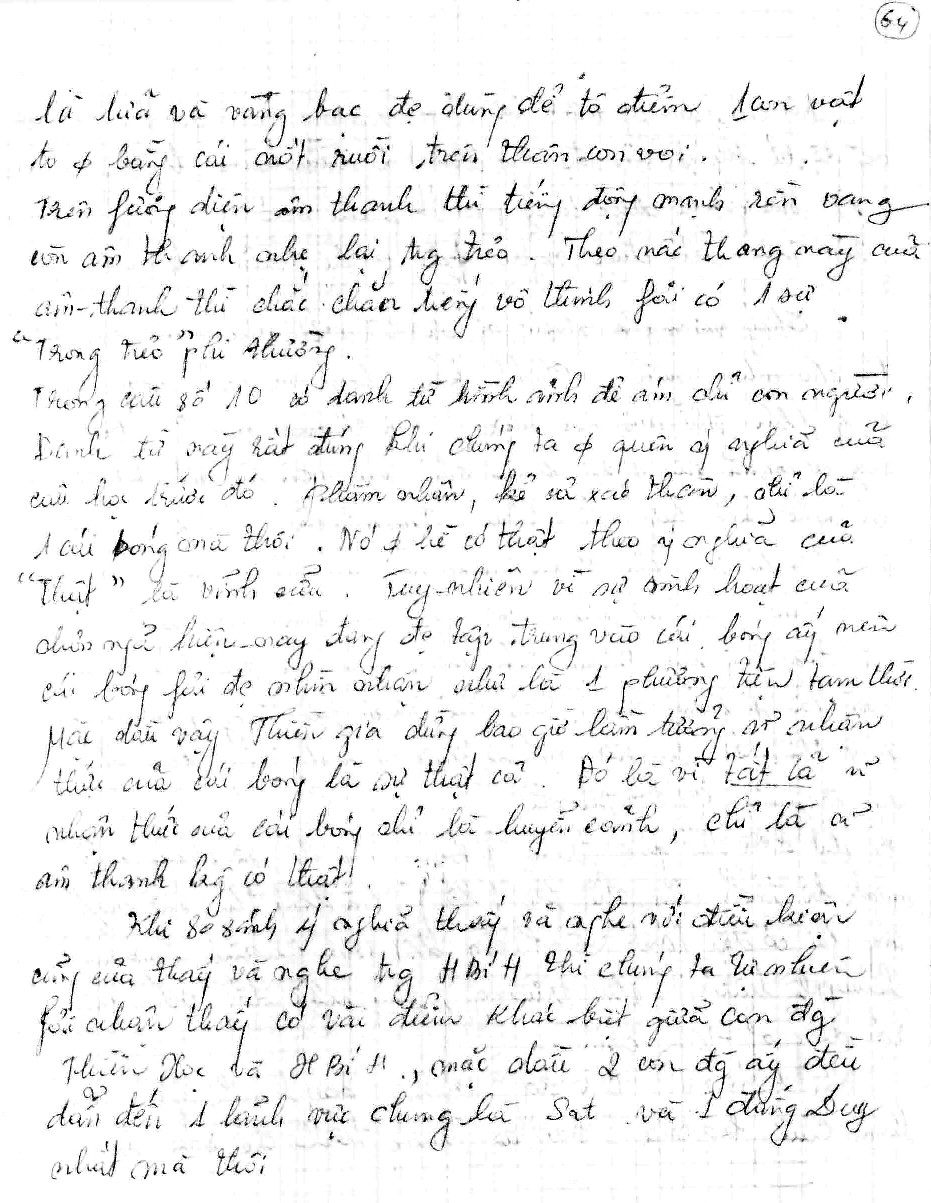 64
là lụa và vàng bạc đc dùng để tô điểm 1 con vật
to ɸ bằng cái nốt ruồi trên thân con voi.
Trên fương diện âm thanh thì tiếng động mạnh rền vang
còn âm thanh nhẹ lại trg trẻo. Theo nấc thang này của
âm-thanh thì chắc chắn tiếng vô thinh fải có 1 sự
"Trong trẻo" phi thường.
Trong câu số 10 có danh từ hình ảnh để ám chỉ con người.
Danh từ này rất đúng khi chúng ta ɸ quên ý nghĩa của
câu học trước đó. Phàm nhân, kể cả xác thân, chỉ là
1 cái bóng mà thôi. Nó ɸ hề có thật theo ý nghĩa của
"Thật" là vĩnh cửu. Tuy-nhiên vì sự sinh hoạt của
chơn ngã hiện-nay đang đc tập trung vào cái bóng ấy nên
cái bóng fải đc nhìn nhận như là 1 phương tiện tạm thời.
Mặc dầu vậy Thiền giả đừng bao giờ lầm tưởng n~ nhận
thức của cái bóng là sự thật cả. Đó là vì tất cả n~
nhận thức của cái bóng chỉ là huyễn cảnh, chỉ là n~
âm thanh kg có thật.
Khi so sánh ý nghĩa thấy và nghe với điều kiện
cũng của thấy và nghe trg HBíH thì chúng ta tự nhiên
fải nhận thấy có vài điểm khác biệt giữa con đg
Thiền Học và HBíH., mặc dầu 2 con đg ấy đều
dẫn đến 1 lãnh vực chung là Sat và 1 đấng Duy
nhất mà thôi